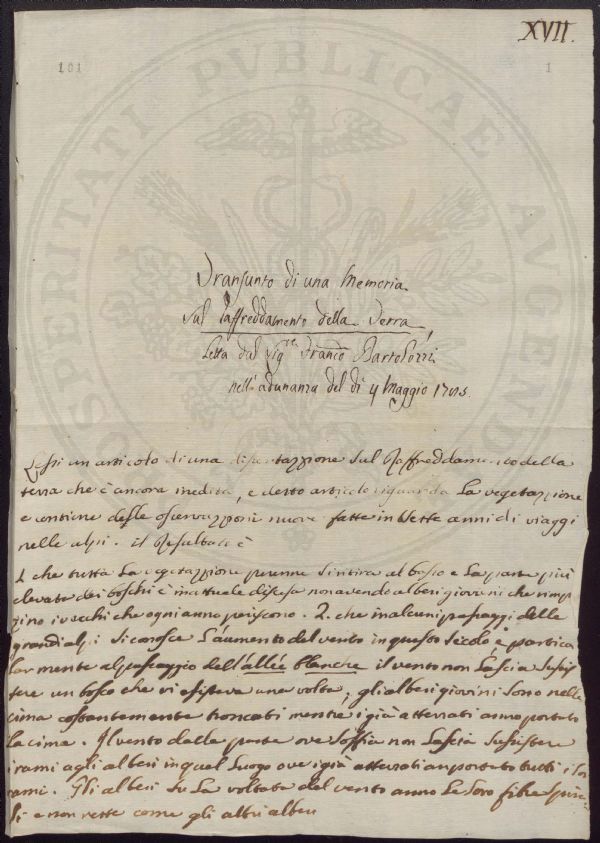 XVII.
101 1
Transunto di una Memoria
sul Raffreddamento della Terra,
Letta dal Sigre Franco Bartolozzi
nell'adunanza del dì 4 Maggio 1785.
Lessi un articolo di una dissertazzione sul Raffreddamento della
terra che è ancora inedita, e detto articolo riguarda La vegetazzione
e contiene delle osservazzioni nuove fatte in sette anni di viaggi
nelle alpi. il Resultato è
1. che tutta La vegetazzione perenne si ritira al basso e La parte più
elevata dei boschi è in attuale discesa non avendo alberi giovini che rimp
zino i vecchi che ogni anno periscono. 2. che in alcuni passaggi delle
grandi alpi si conosce L'aumento del vento in questo secolo, e partico
larmente al passaggio dell'allée Blanche il vento non Lascia sussis
tere un bosco che vi esisteva una volta; gli alberi giovini sono nelle
cima costantemente troncati mentre i già atterrati anno portato
La cima. Il vento dalla parte ove soffia non Lascia sussistere
i rami agli alberi in quel Luogo ove i già atterrati an portato tutti i Lor
rami. Gli alberi su La voltata del vento anno Le Loro fibre
si e non rette come gli altri alberi